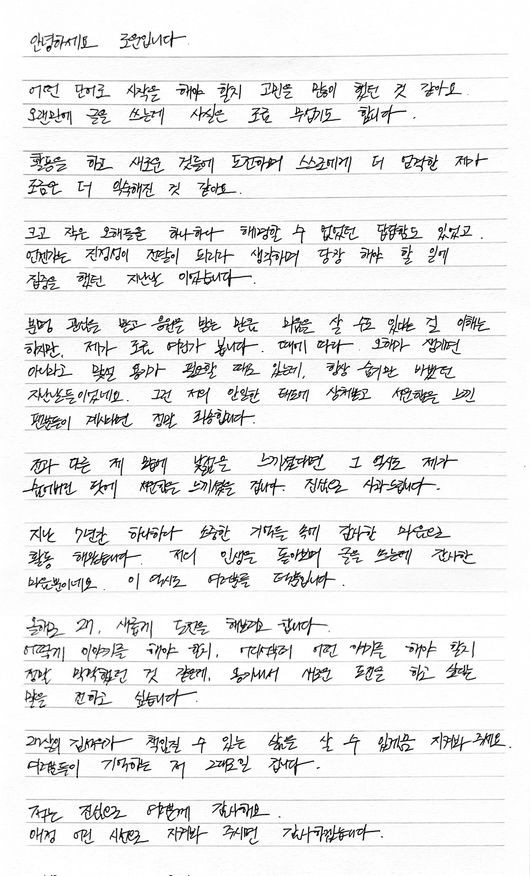 안녕하세요 로운입니다
어떤 단어로 시작을 해야 할지 고민을 많이 했던 것 같아요.
오랜만에 글을 쓰는데 사실은 조금 무섭기도 합니다.
활동을 하고 새로운 것들에 도전하며 스스로에게 더 엄격한 제가
조금은 더 익숙해진 것 같아요.
크고 작은 오해들을 하나하나 해명할 수 없었던 답답함도 있었고.
언젠가는 진정성이 전달이 되리라 생각하며 당장 해야 할 일에
집중을 했던 지난날 이었습니다.
분명 관심을 받고 응원을 받는 만큼 미움을 살 수도 있다는 걸 이해는
하지만, 제가 조금 여린가 봅니다. 때에 따라 오해가 생기면
아니라고 맞설 용기가 필요할 때도 있는데, 항상 숨기만 바빴던
지난날들이었네요. 그런 저의 안일한 태도에 상처받고 서운함을 느낀
팬분들이 계시다면 정말 죄송합니다.
전과 다른 제 모습에 낯섦을 느끼셨다면 그 역시도 제가
숨어버린 탓에 서운함을 느끼셨을 겁니다. 진심으로 사과드립니다.
지난 7년간 하나하나 소중한 기억들 속에 감사한 마음으로
활동 해왔습니다. 저의 인생을 돌아보며 글을 쓰는데 감사한
마음뿐이네요. 이 역시도 여러분들 덕분입니다.
올해로 27, 새롭게 도전을 해보려고 합니다.
어떻게 이야기를 해야 할지, 어디서부터 어떤 얘기를 해야 할지
정말 막막했던 것 같은데, 용기내서 새로운 도전을 하고 싶다는
말을 전하고 싶습니다.
27살의 김석우가 책임질 수 있는 삶을 살 수 있게끔 지켜봐 주세요.
여러분들이 기억하는 저 그대로일 겁니다.
저는 진심으로 여러분께 감사해요.
애정 어린 시선으로 지켜봐 주시면 감사하겠습니다.